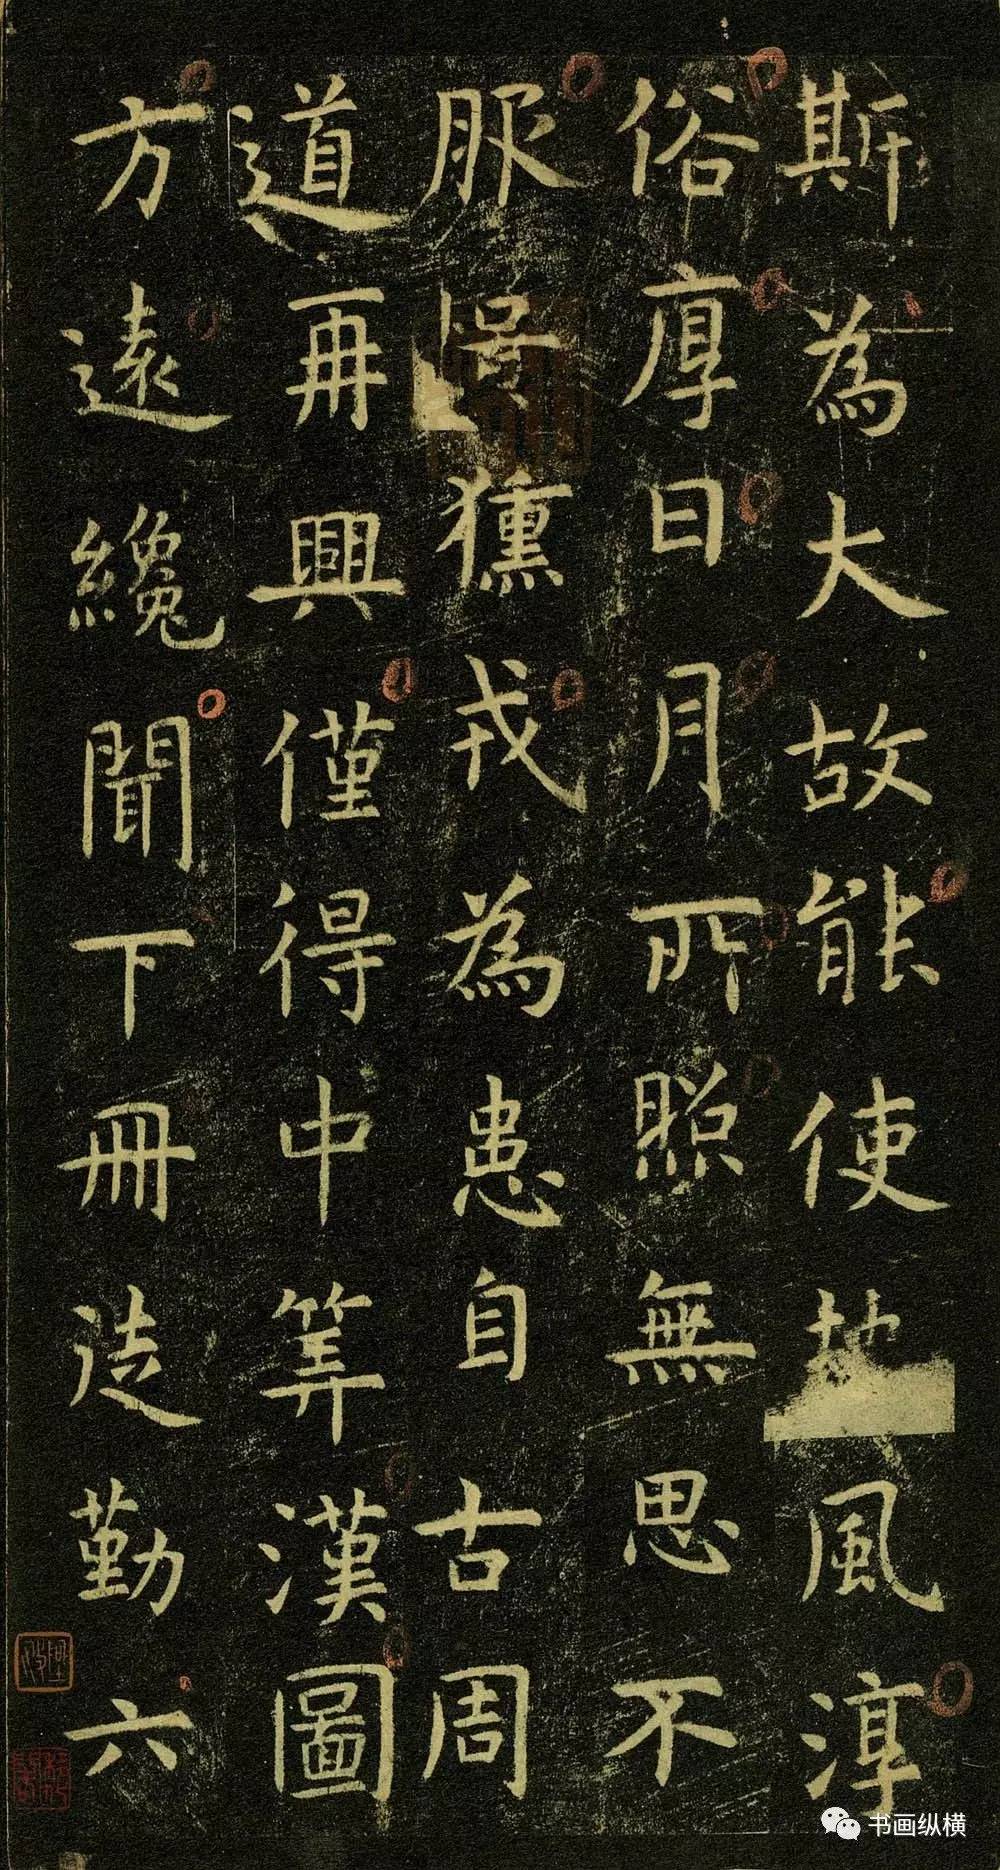 斯為大故能使地風淳
俗厚日月所照無思不
服獯戎為患自古周
道再興僅得中筭漢圖
方遠纔聞下冊徒勤六
书画纵横